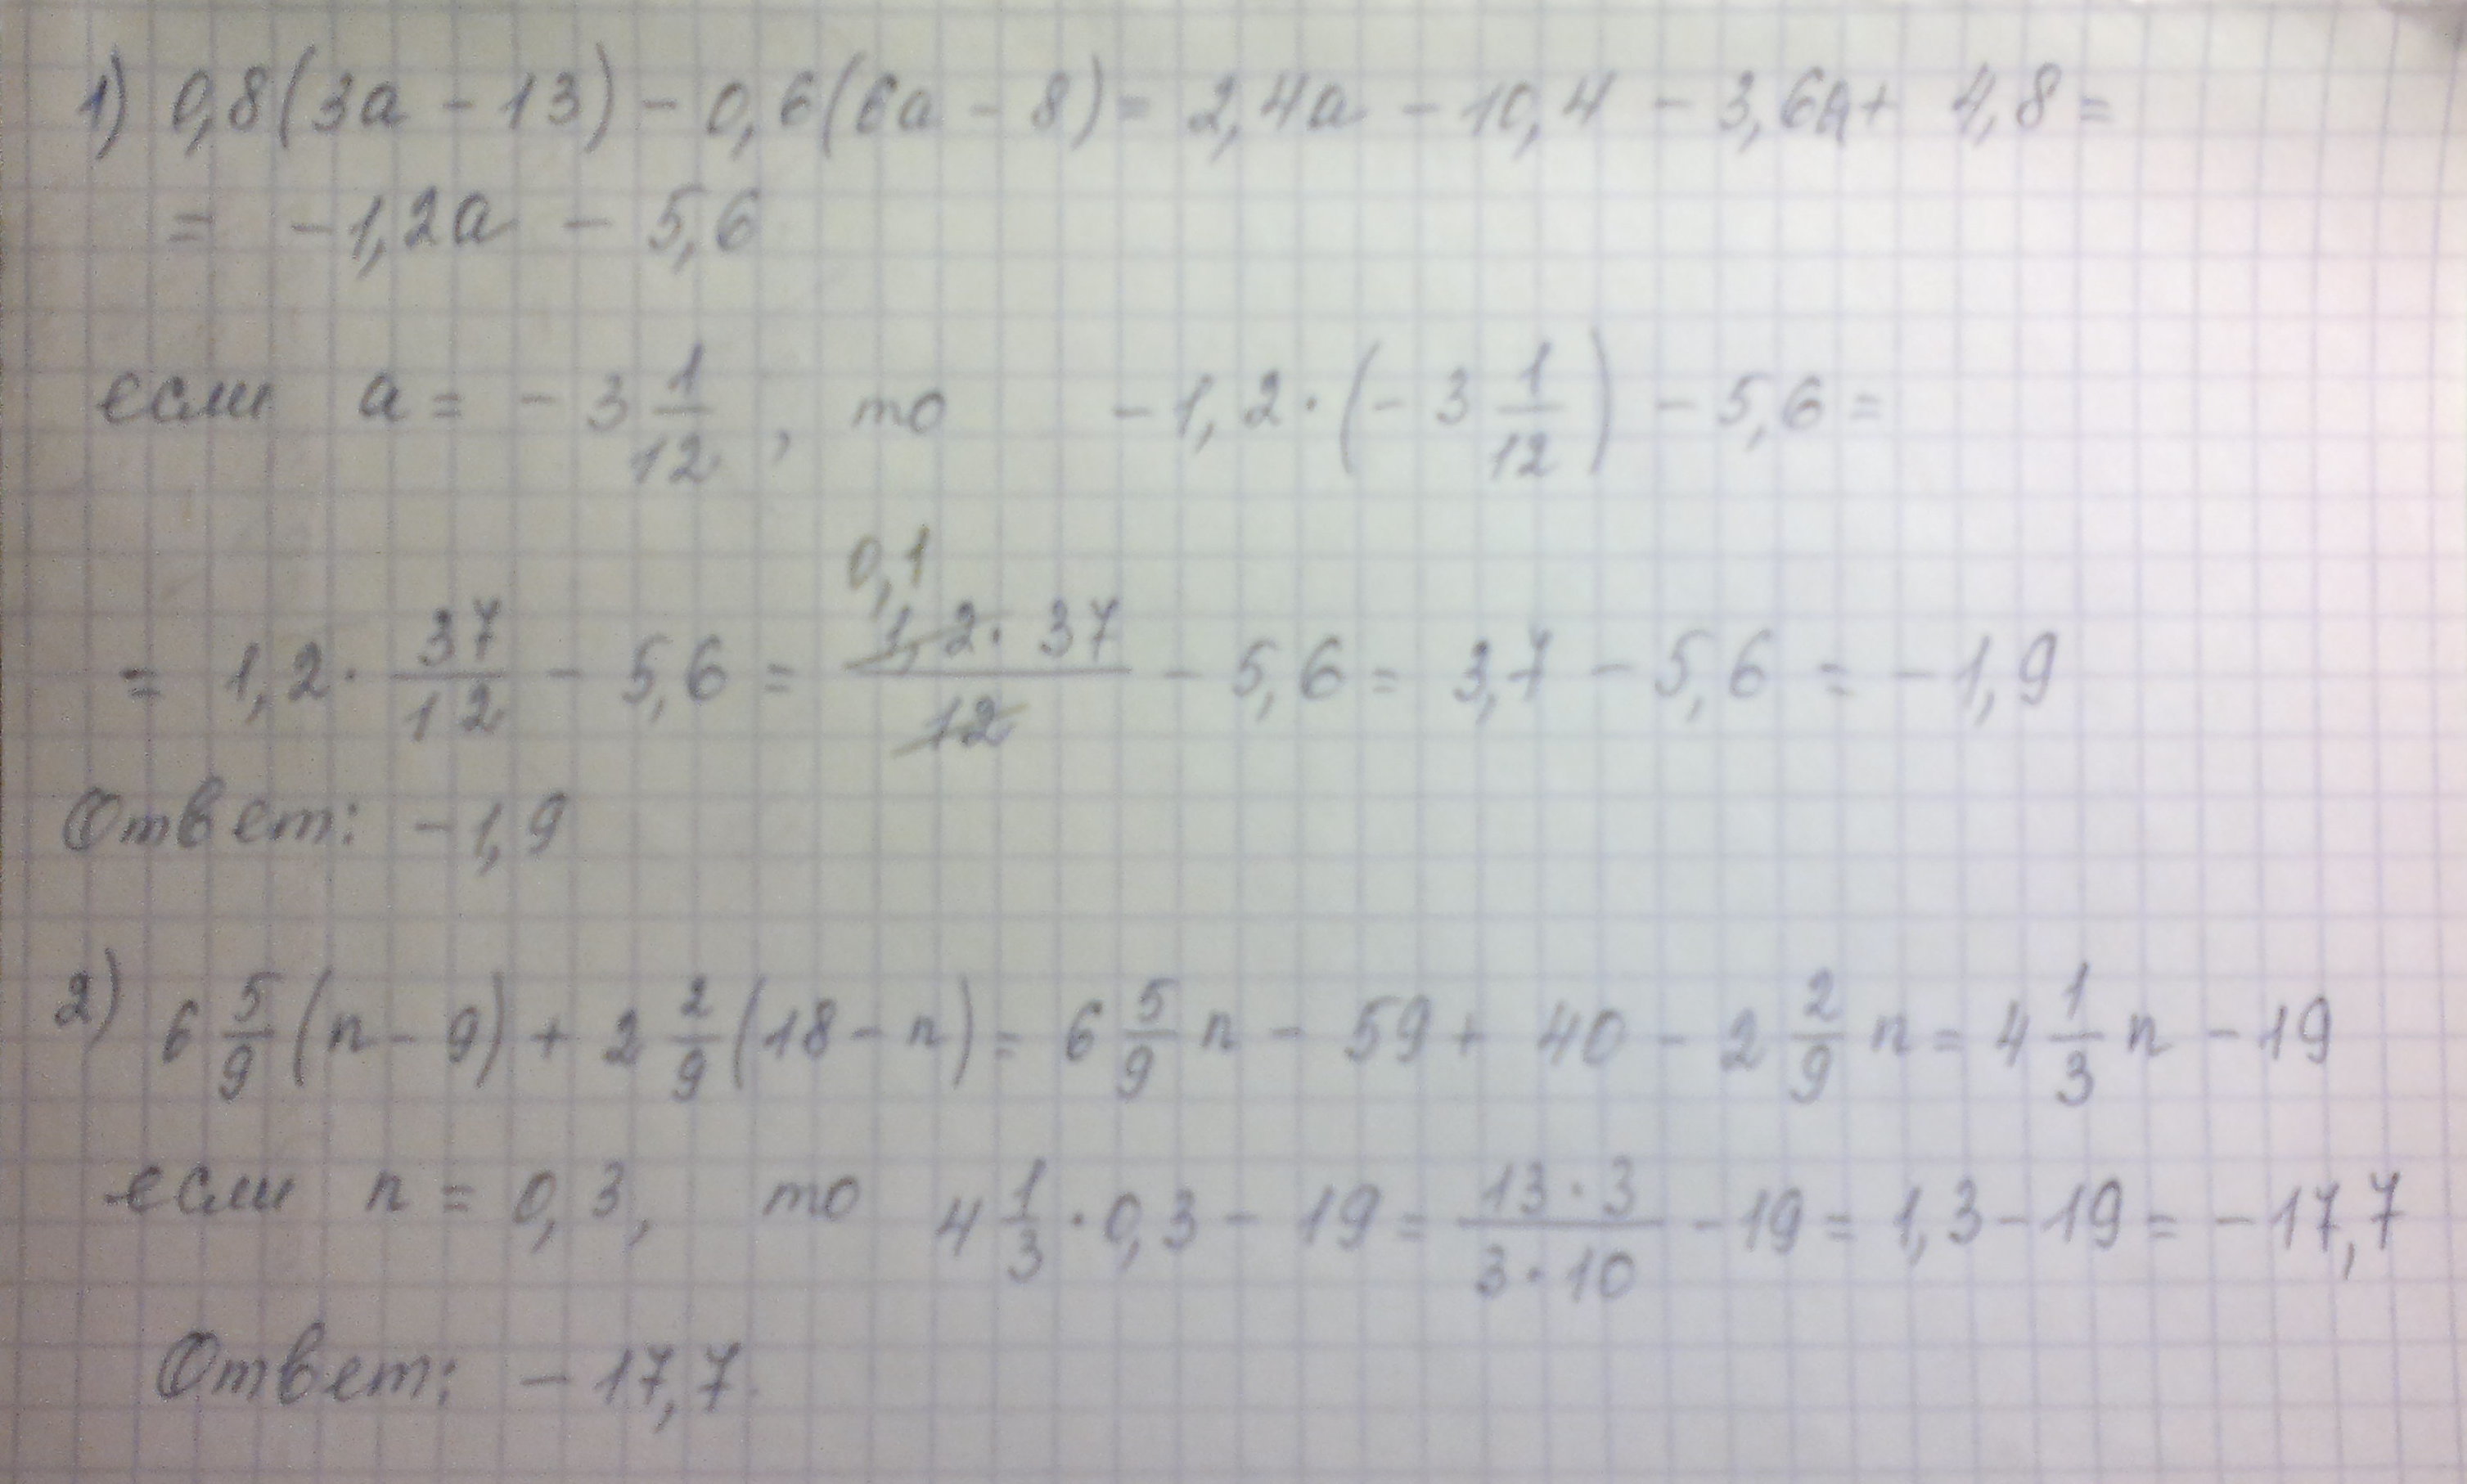 1) 0,8(3a - 13) - 0,6(6a - 8) = 2,4a - 10,4 - 3,6a + 4,8 =
= -1,2a - 5,6
если a = -3 1/12, то -1,2·(-3 1/12) - 5,6 =
0,1
= 1,2· 37/12 - 5,6 = 1,2·37/12 - 5,6 = 3,7 - 5,6 = -1,9
Ответ: -1,9
2) 6 5/9 (n - 9) + 2 2/9 (18 - n) = 6 5/9 n - 59 + 40 - 2 2/9 n = 4 1/3 n - 19
если n = 0,3, то 4 1/3 · 0,3 - 19 = 13·3/3·10 - 19 = 1,3 - 19 = -17,7
Ответ: -17,7.